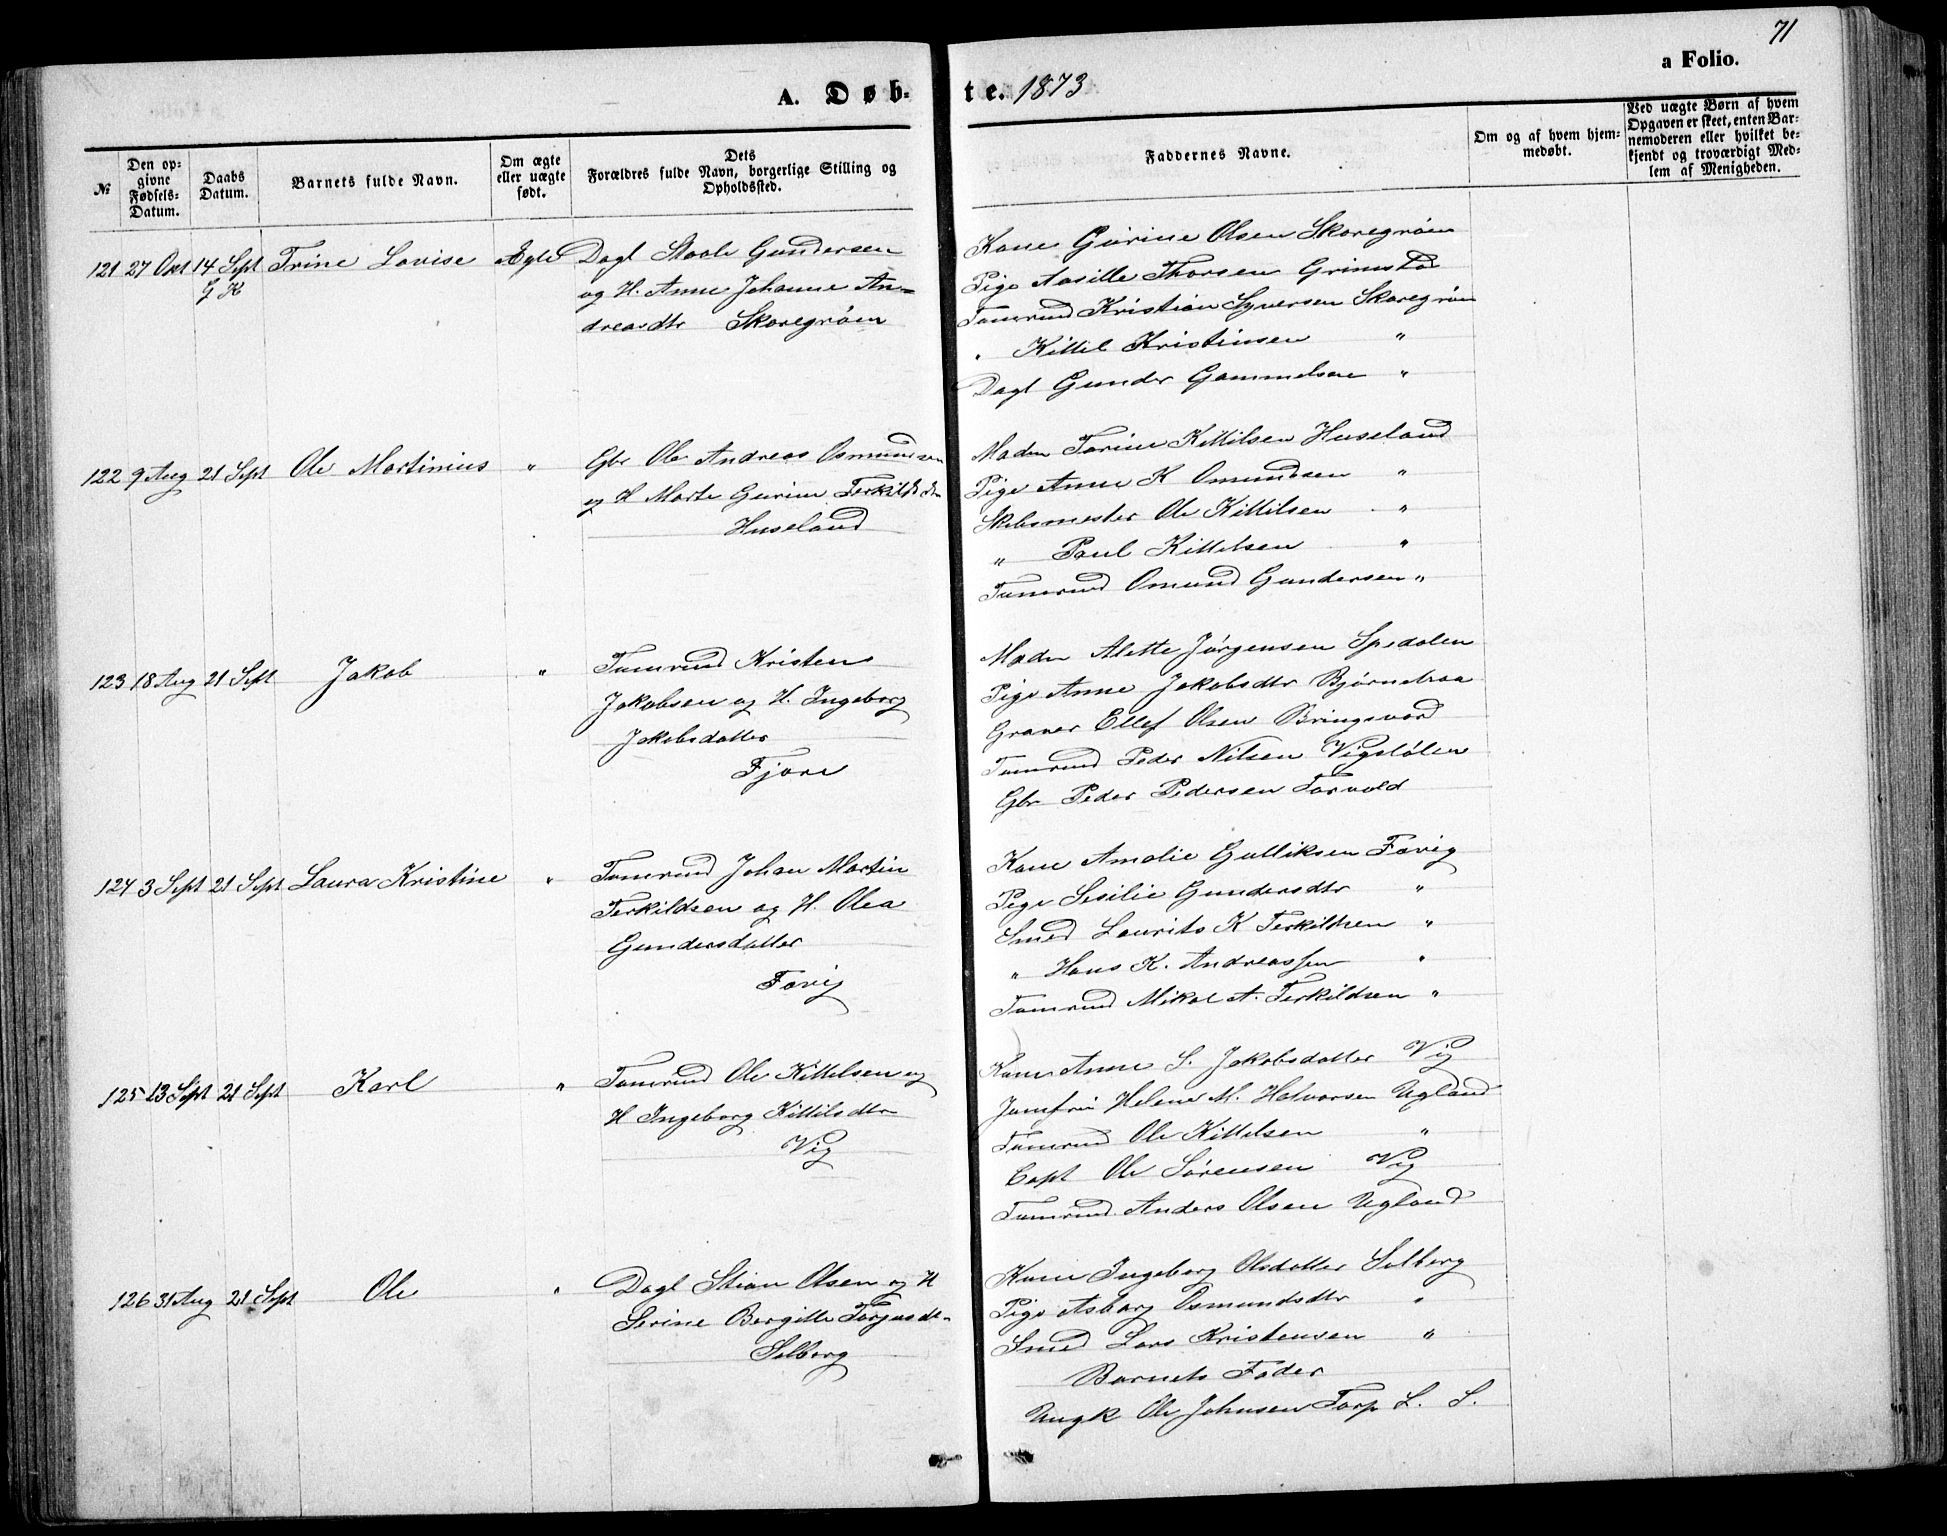 71
a Folio.
A. Døb-
te. 1873
№
Den op-
givne
Fødsels-
Datum.
Daabs
Datum.
Barnets fulde Navn.
Om ægte
eller uægte
født.
Dets
Forældres fulde Navn, borgerlige Stilling og
Opholdssted.
Faddernes Navne.
Om og af hvem hjem-
medøbt.
Ved uægte Børn af hvem
Opgaven er skeet, enten Bar-
nemoderen eller hvilket be-
kjendt og troværdigt Med-
lem af Menigheden.
121 27 14 Sept Trine Lovise Ægte Dagl Gundersen
G K
og H. Anne Johanne An-
dreasdtr Skaregrøm
Kone Gurine Olsen Skaregrøm
Pige Aasille Thorsen Grimstad
Tømrmd Kristian Syversen Skaregrøm
" Kittil Kristinsen "
Dagl Gunder Gammelsen "
122 9 Aug 21 Sept Ole Martinius "
Gbr Ole Andreas Osmundsen
og H Marte Gurine Terkildsdtr
Huseland
Madm Torine Kittilsen Huseland
Pige Anne K Omundsen "
Skibsmester Ole Kittilsen "
" Paul Kittelsen "
Tømrmd Omund Gundersen "
123 18 Aug 21 Sept Jakob "
Tømrmd Kristen
Jakobsen og H. Ingeborg
Jakobsdatter
Fjære
Madm Alette Jørgensen Spedalen
Pige Anne Jakobsdtr Bjørnebaa
Graver Ellef Olsen Bringsvord
Tømrmd Peder Nilsen Vigstølen
Gbr Peder Pedersen Tarvold
124 3 Sept 21 Sept Laura Kristine "
Tømrmd Johan Martin
Terkildsen og H. Olea
Gundersdatter
Fævig
Kone Amalie Gulliksen Fævig
Pige Sesilie Gundersdtr "
Smed Laurits K Terkildsen "
" Hans K. Andreassen "
Tømrmd Mikal A. Terkildsen "
125 13 Sept 21 Sept Karl "
Tømrmd Ole Kittelsen og
H Ingeborg Kittilsdtr
Vig
Kone Anne S. Jakobsdatter Vig
Jomfru Helene M. Halvorsen Ugland
Tømrmd Ole Kittelsen "
Capt Ole Sørensen Vig
Tømrmd Anders Olsen Ugland
126 31 Aug 21 Sept Ole "
Dagl Stian Olsen og H
Serine Bergitte Torjusdr
Solberg
Kone Ingeborg Olsdatter Solberg
Pige Asborg Osmundsdtr "
Smed Lars Kristensen "
Barnets Fader
Ungk Ole Johnsen Torp L. S.